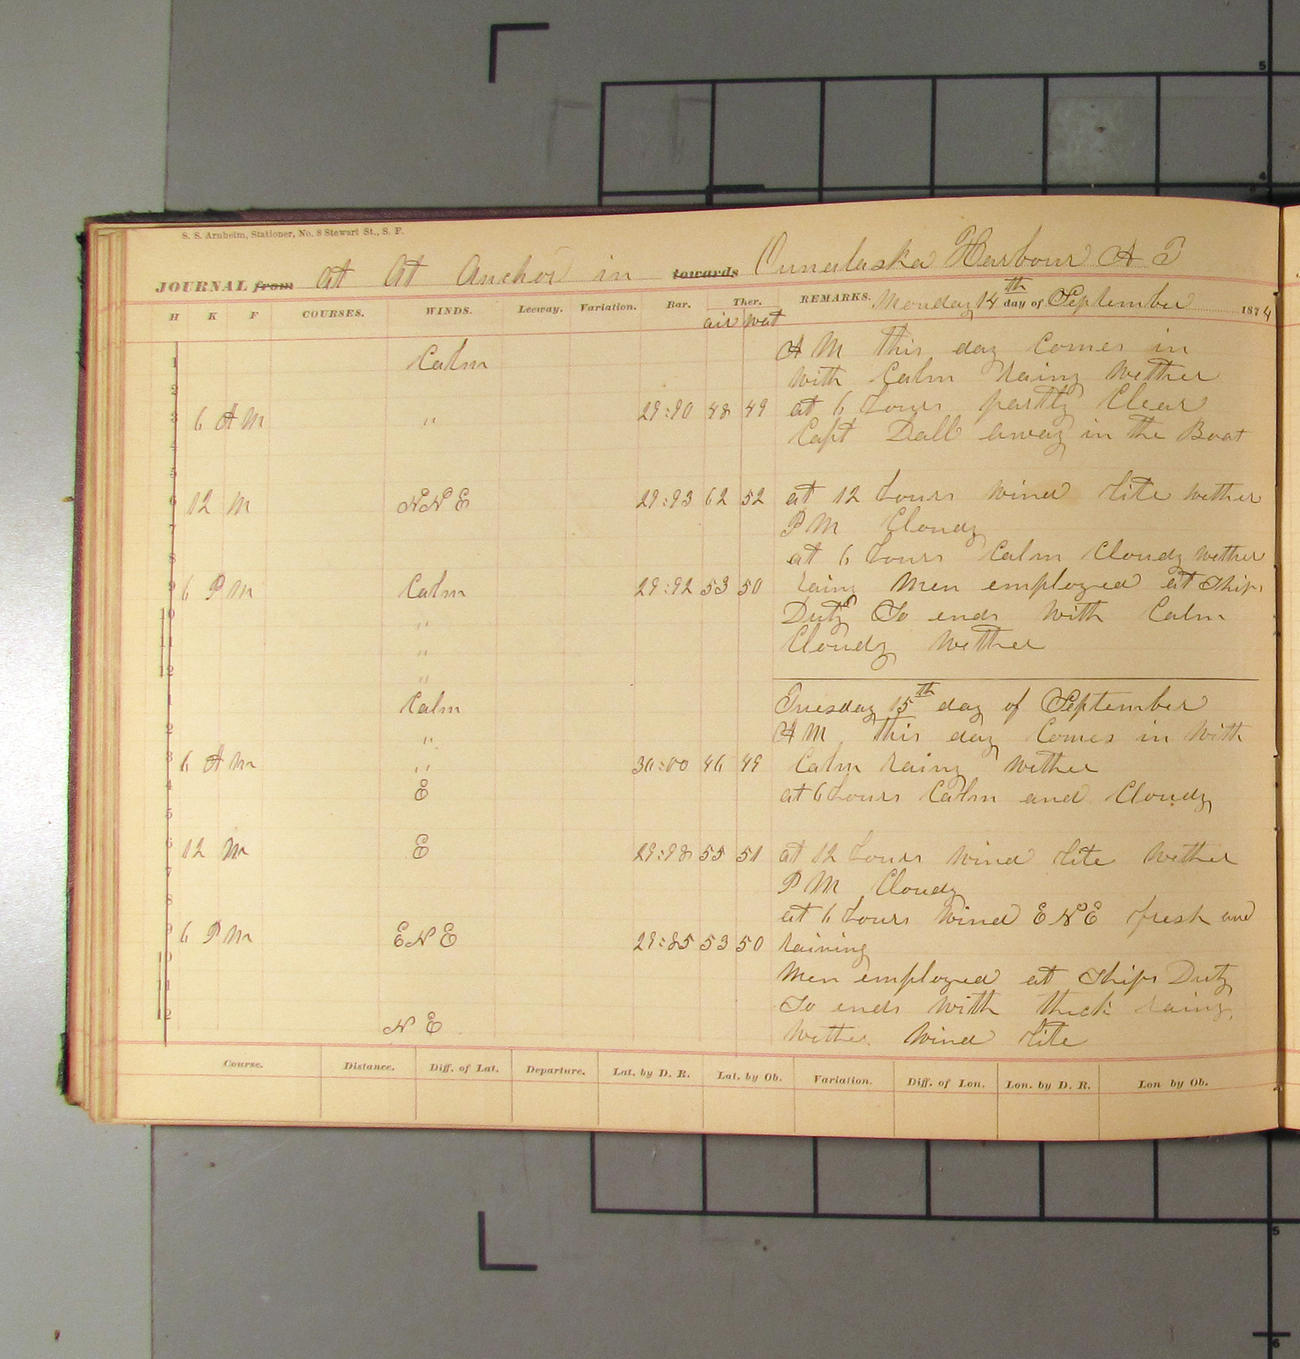 S. S. Arnheim, Stationer, No. 8 Stewart St., S. F.
JOURNAL from at At Anchor in towards Ounalaska Harbour A T
H K F COURSES. WINDS. Leeway. Variation. Bar. Ther. REMARKS. Monday 14th day of September 1874
air wat
1 Calm A M this day Comes in
2 with Calm rainy wether
3 6 A M " 29:90 48 49 at 6 hours partly Clear
4 Capt Dall away in the Boat
5
6 12 M N N E 29:93 62 52 at 12 hours wind lite wether
7 P M Cloudy
8 at 6 hours Calm Cloudy wether
9 6 P M Calm 29:92 53 50 rainy Men employed at Ships
10 " Duty So ends with Calm
11 " Cloudy wether
12 "
1 Calm Tuesday 15th day of September
2 " A M this day Comes in with
3 6 A M " 30:00 46 49 Calm rainy wether
4 E at 6 hours Calm and Cloudy
5
6 12 M E 29:98 55 51 at 12 hours wind lite wether
7 P M Cloudy
8 at 6 hours wind E N E fresh and
9 6 P M E N E 29:85 53 50 raining
10 Men employed at Ships Duty
11 So ends with thick rainy
12 N E wether wind lite
Course. Distance. Diff. of Lat. Departure. Lat. by D. R. Lat. by Ob. Variation. Diff. of Lon. Lon. by D. R. Lon by Ob.
5
4
5
6